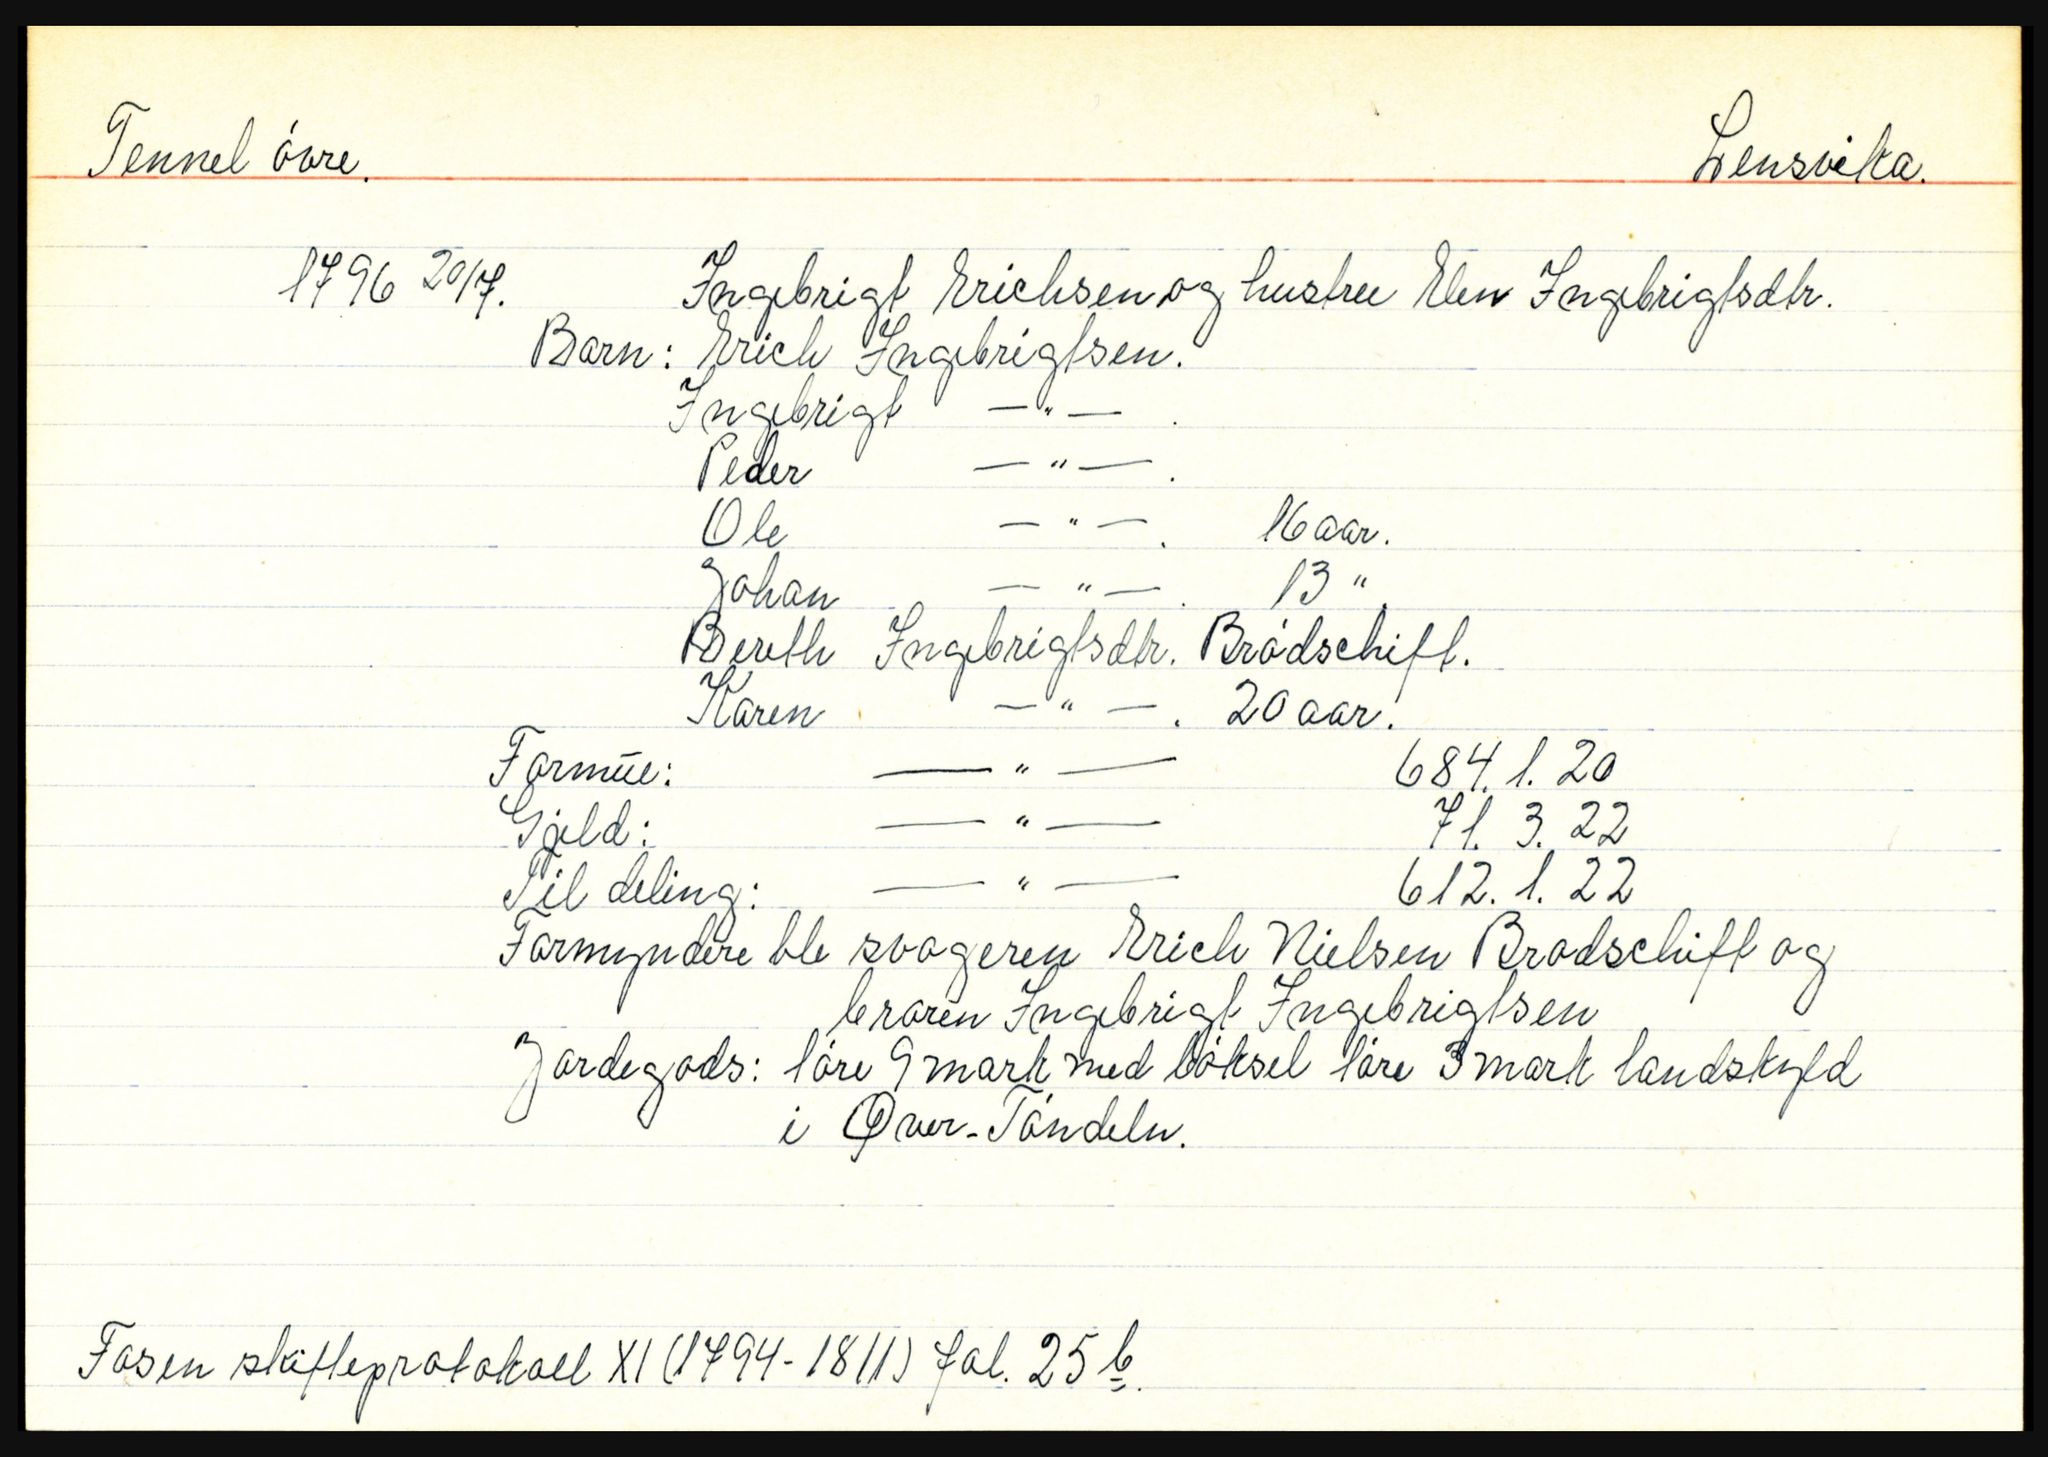 Tennel óvre. Lensvika.
1796 20/7. Ingebrigt Erichsen og hustru Elen Ingebrigtsdtr.
Barn: Erich Ingebrigtsen.
Ingebrigt —"— .
Peder —"— .
Ole —"— . 16 aar.
Johan —"— . 13 "
Bereth Ingebrigtsdtr. Bródschift.
Karen —"— . 20 aar.
Formue: —"— 684. 1. 20
Gjeld: —"— 71. 3. 22
Til deling: —"— 612. 1. 22
Formyndere ble svogeren Erich Nielsen Brodschift og
broren Ingebrigt Ingebrigtsen
Jordegods: 1 óre 9 mark med bóksel 1 óre 3 mark landskyld
i Øver-Tóndeln.
Fosen skifteprotokoll XI (1794-1811) fol. 25 b.